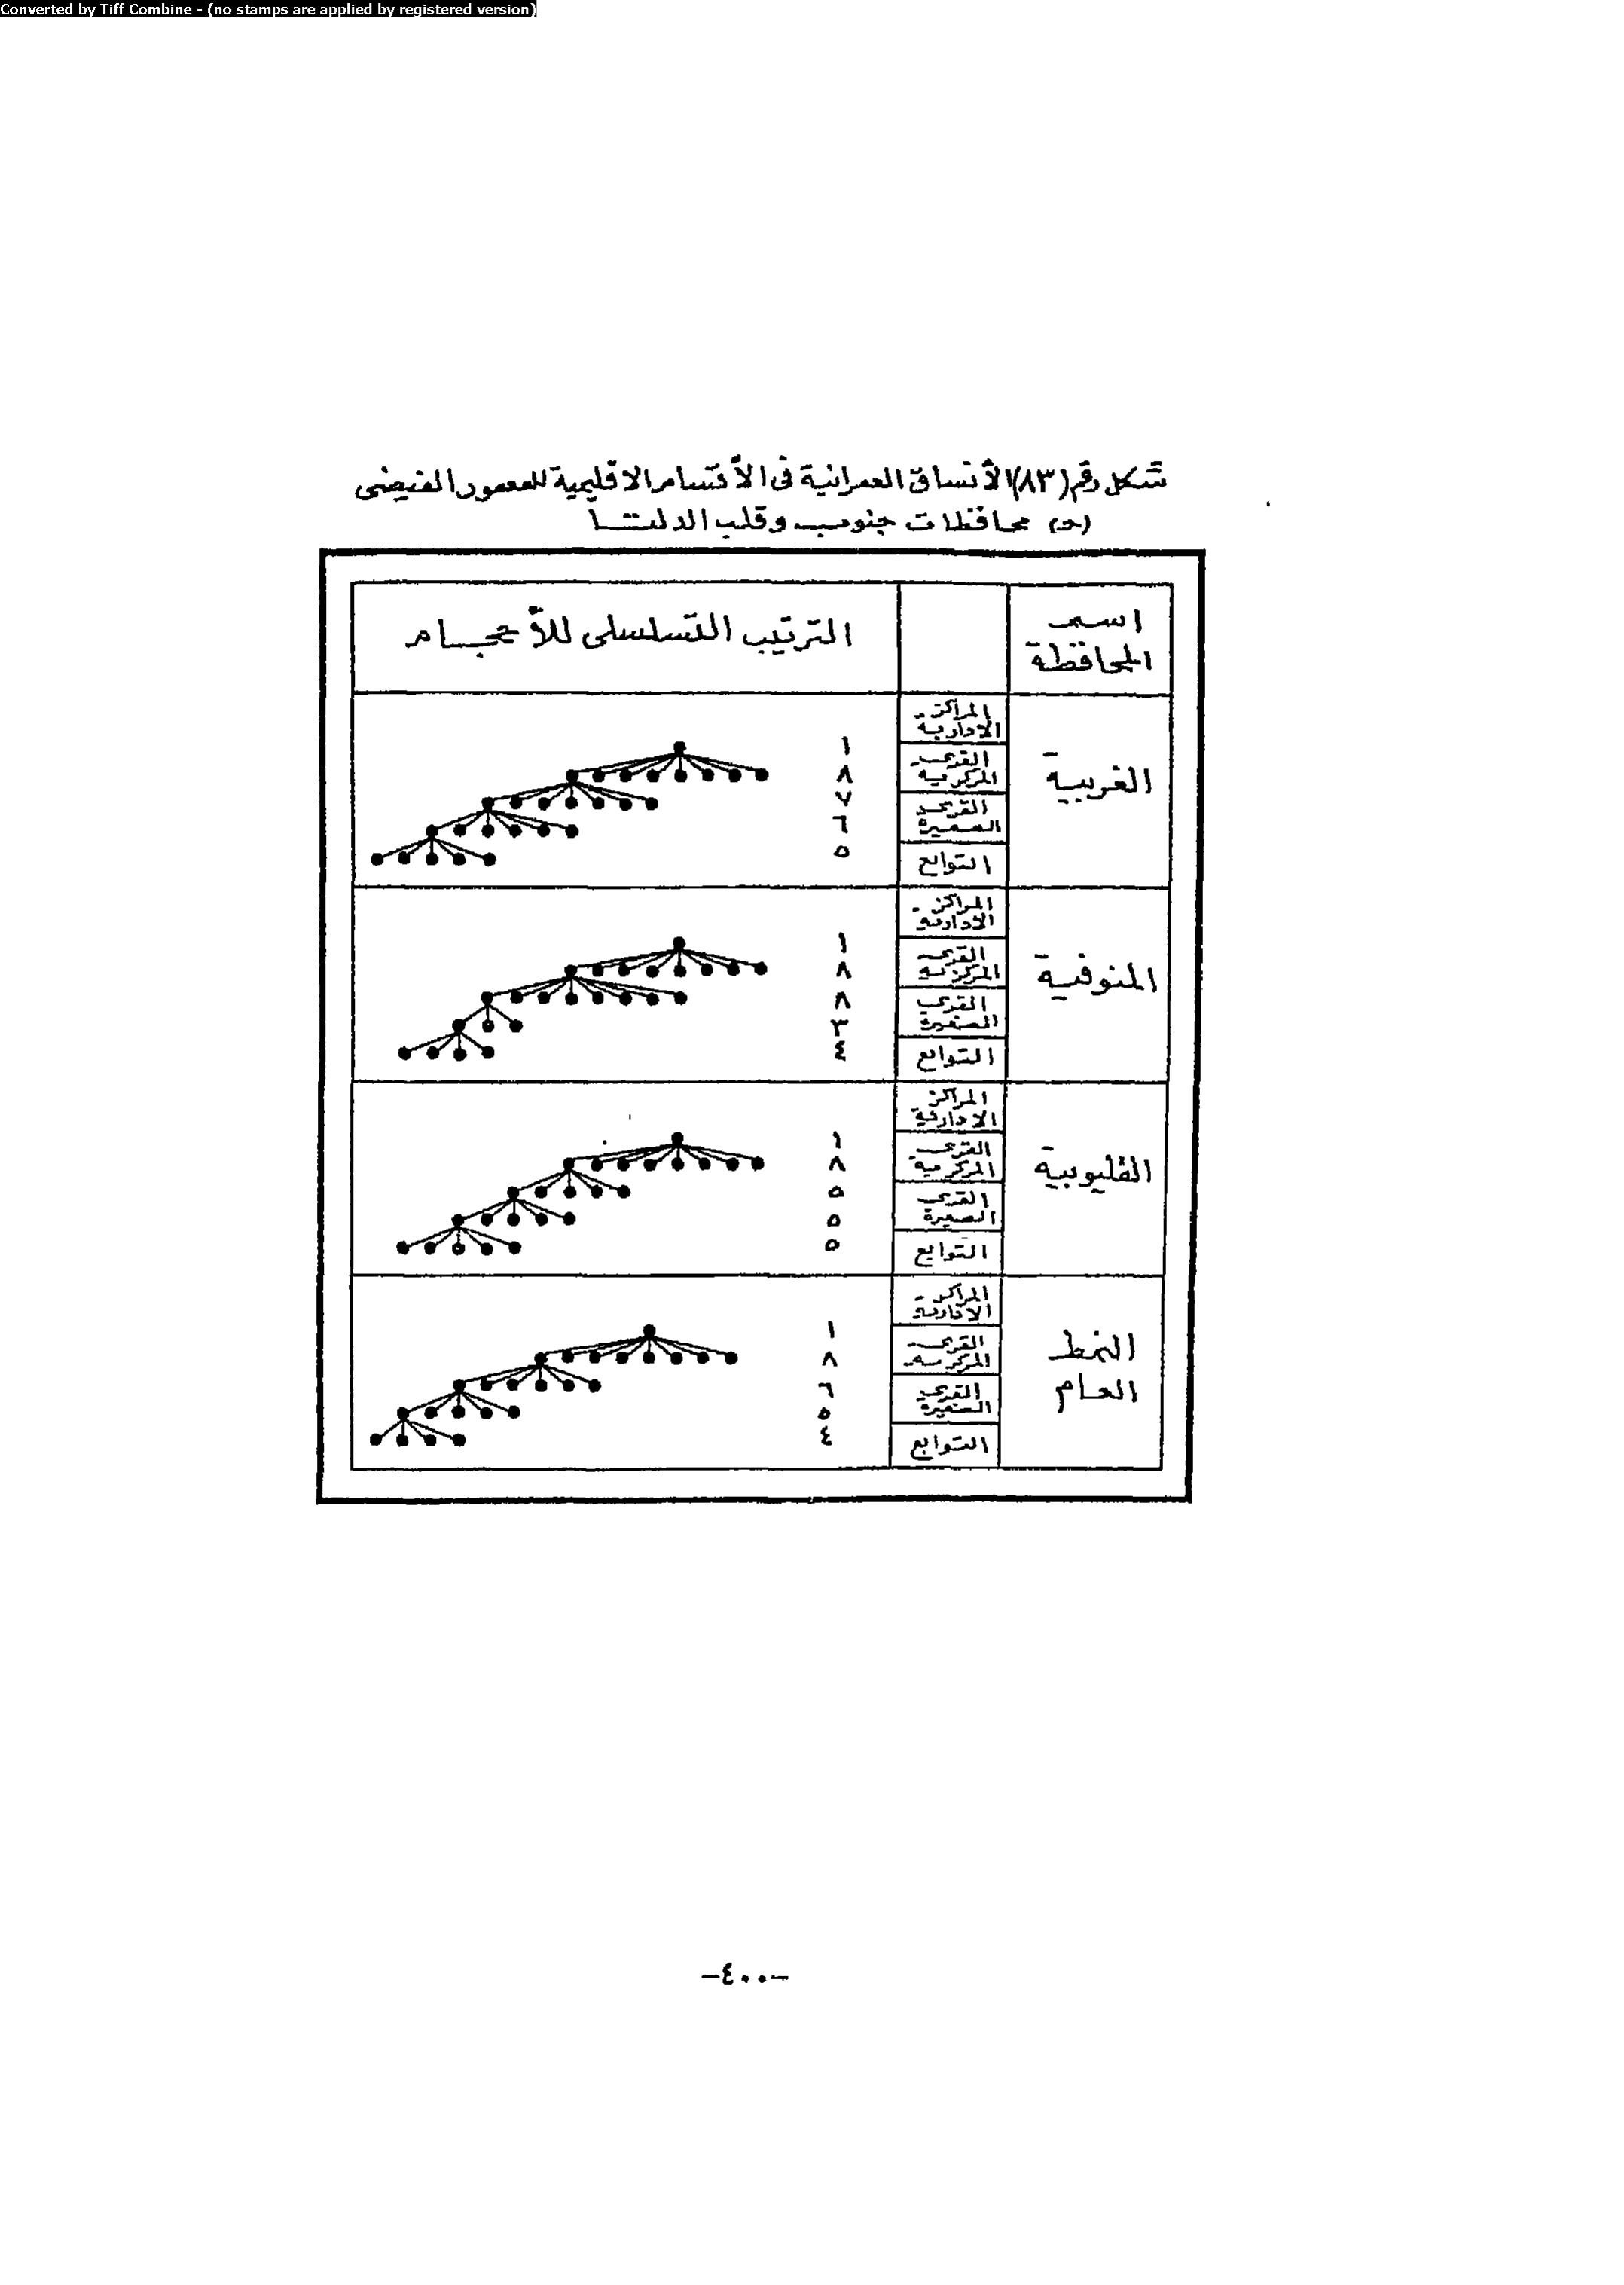 Converted by Tiff Combine - (no stamps are applied by registered version)
شكل رقم (٨٣) الأنساق العمرانية فى الأقسام الاقليمية للمعمور الفيضى
(حـ) محافظات جنوب وقلب الدلتا
اسم
المحافظة
الترتيب التسلسلى للأحجام
الغربية
المراكز
الادارية
القرى
المركزية
القرى
الصغيرة
التوابع
١
٨
٧
٦
٥
المنوفية
المراكز
الادارية
القرى
المركزية
القرى
الصغيرة
التوابع
١
٨
٨
٣
٤
القليوبية
المراكز
الادارية
القرى
المركزية
القرى
الصغيرة
التوابع
١
٨
٥
٥
٥
النمط
العام
المراكز
الادارية
القرى
المركزية
القرى
الصغيرة
التوابع
١
٨
٦
٥
٤
-٤٠٠-